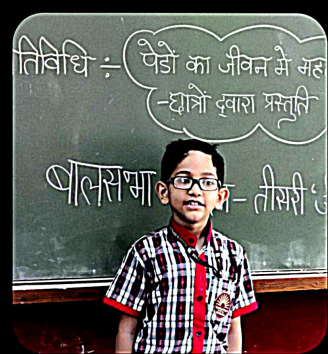 तिविधि :- पेडों का जीवन मे मह
-छात्रों द्वारा प्रस्तुति
बालसभा - तीसरी